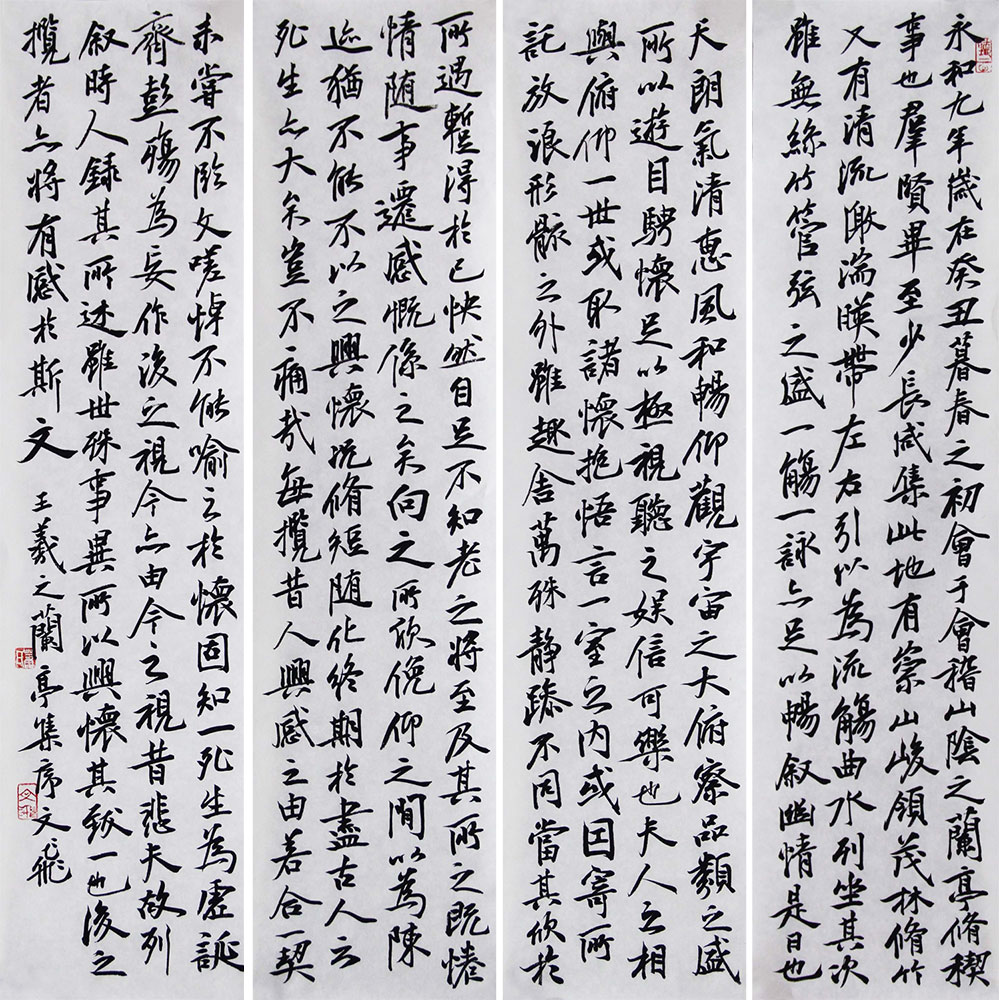 永和九年歲在癸丑暮春之初會于會稽山陰之蘭亭脩稧
事也羣賢畢至少長咸集此地有崇山峻領茂林脩竹
又有清流激湍暎帶左右引以為流觴曲水列坐其次
雖無絲竹管弦之盛一觴一詠亦足以暢叙幽情是日也
天朗氣清惠風和暢仰觀宇宙之大俯察品類之盛
所以遊目騁懷足以極視聽之娛信可樂也夫人之相
與俯仰一世或取諸懷抱悟言一室之內或因寄所
託放浪形骸之外雖趣舍萬殊靜躁不同當其欣於
所遇蹔得於己快然自足不知老之將至及其所之既惓
情隨事遷感慨係之矣向之所欣俛仰之閒以為陳
迹猶不能不以之興懷況脩短隨化終期於盡古人云
死生亦大矣豈不痛哉每攬昔人興感之由若合一契
未嘗不臨文嗟悼不能喻之於懷固知一死生為虛誕
齊彭殤為妄作後之視今亦由今之視昔悲夫故列
叙時人錄其所述雖世殊事異所以興懷其致一也後之
攬者亦將有感於斯文 王羲之蘭亭集序文飛